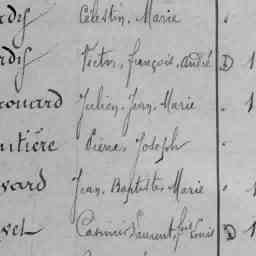 rdy Célestin, Marie "
rdy Victor, françois, andré D 1
rouard Julien, Jean, Marie " 1
utière Pierre Joseph "
vard Jean, Baptiste, Marie " 1
vel Casimir, Laurent, fois Louis D 1